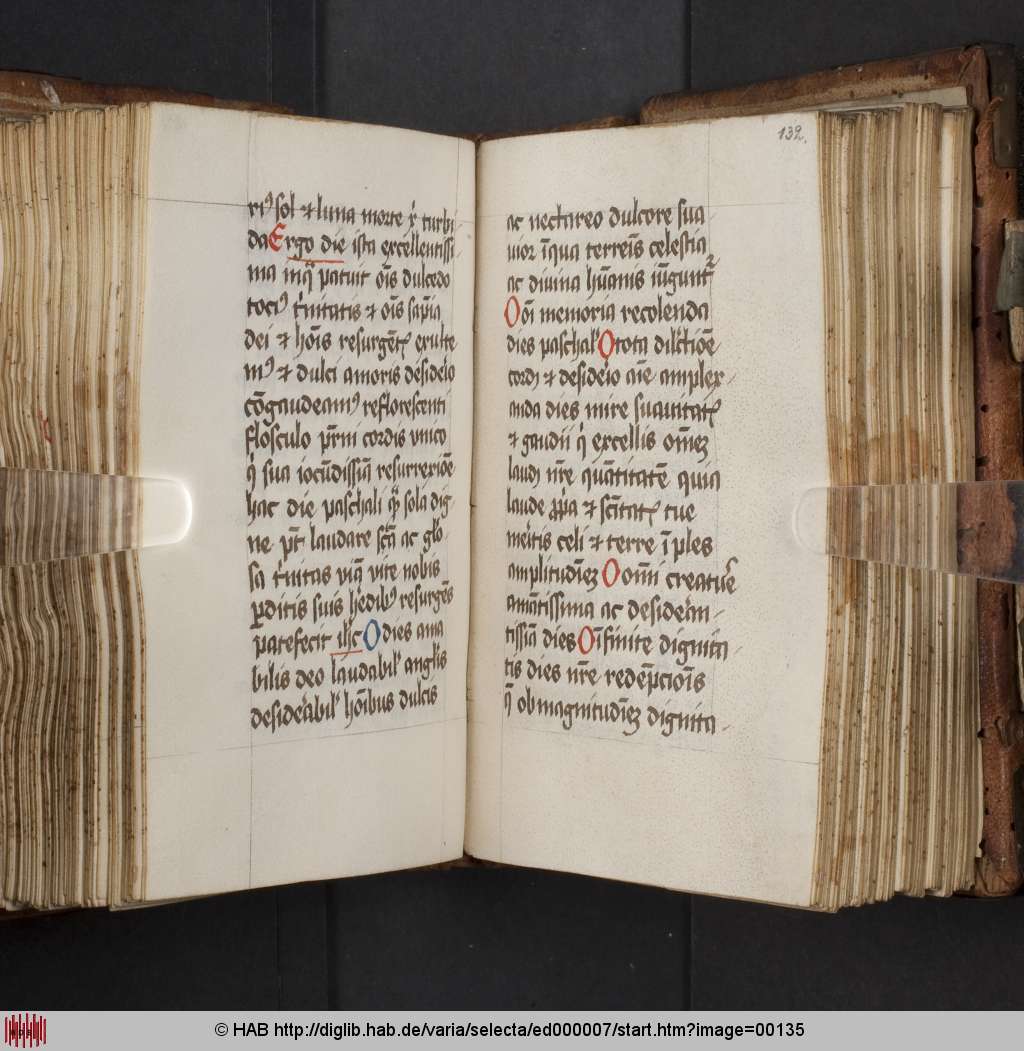 ri⁹ sol ⁊ luna morte xͥ turbi
da Ergo die ista excellentissi
ma in qͣ patuit oīs dulcedo
toci⁹ tͥnitatis ⁊ oīs sapīa
dei ⁊ hoīs resurgēt exulte
m⁹ ⁊ dulci amoris desideͥo
cōgaudeam⁹ reflorescenti
flosculo pr̄ni cordis vnico
qͥ sua iocūdissīa resurrexiōe
hac die paschali qͣ sola dig
ne pt̄ laudare scā ac gloͥ
sa tͥnitas viā vite nobis
ꝑditis suis hedib⁹ resurgēs
patefecit ih̄c O dies ama
bilis deo laudabil' anglis
desideͣbil' hoībus dulcis
132.
ac nectareo dulcore sua
uior ī qua terreīs celestia
ac diuina hūanis iūgunt
O oī memoria recolenda
dies paschal' O tota dilctiōe
cord ⁊ desideͥo aīe amplex
anda dies mire suauitat
⁊ gaudii qͥ excellis omēz
laud nr̄e quātitatē quia
laude ꝓpͥa ⁊ scītat tue
meͥtis celi ⁊ terre īples
amplitudīez O omī creature
amātissima ac desideͣn
tissīa dies O īfinite dignita
tis dies nr̄e redēpcioīs
q̄ ob magnitudīez dignita
© HAB http://diglib.hab.de/varia/selecta/ed000007/start.htm?image=00135